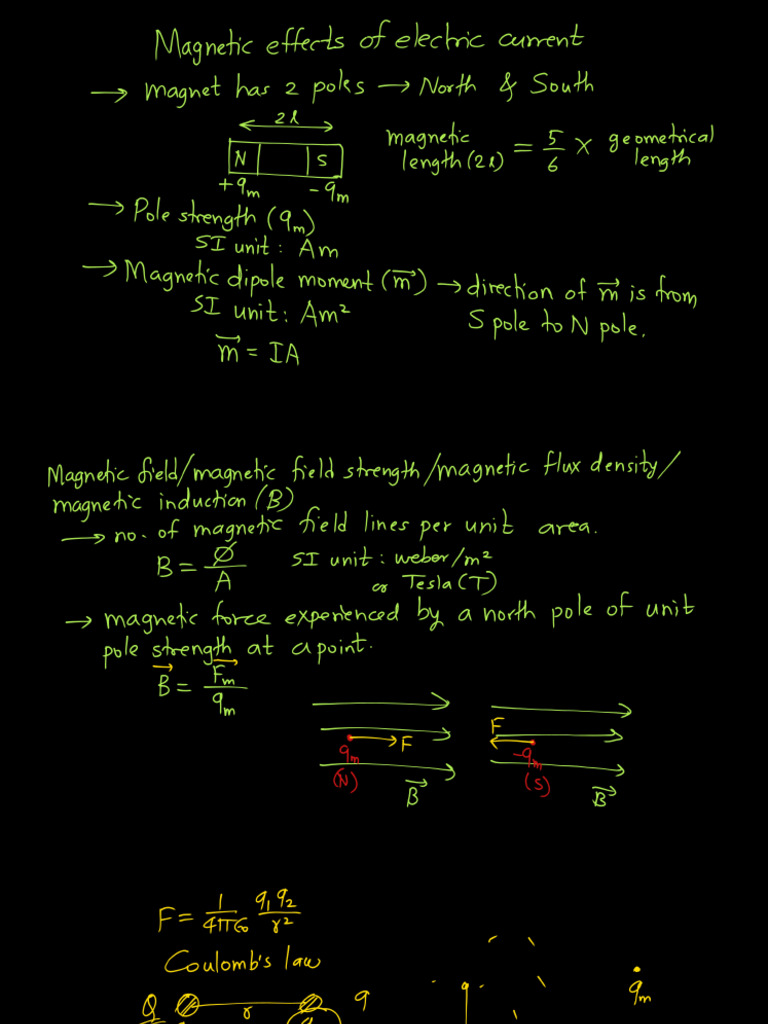 Magnetic effects of electric current
→ magnet has 2 poles → North & South
2l
N S
+qm -qm
magnetic length (2l) = 5/6 × geometrical length
→ Pole strength (qm)
SI unit : Am
→ Magnetic dipole moment (m⃗) → direction of m⃗ is from
S pole to N pole.
SI unit : Am²
m⃗ = IA
Magnetic field/magnetic field strength/magnetic flux density/
magnetic induction (B)
→ no. of magnetic field lines per unit area.
B = Ø/A SI unit : weber/m²
or Tesla (T)
→ magnetic force experienced by a north pole of unit
pole strength at a point.
B⃗ = F⃗m/qm
F
qm
(N)
B⃗
F
-qm
(S)
B⃗
F = 1/4πε₀ q₁q₂/r²
Coulomb's law
Q r q
q
qm